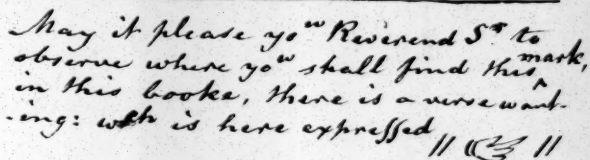 May it please yo^w Reverend S^r to
observe where yo^w shall find this ^mark,
in this booke, there is a verse want-
-ing: w^ch is here expressed // ☞ //